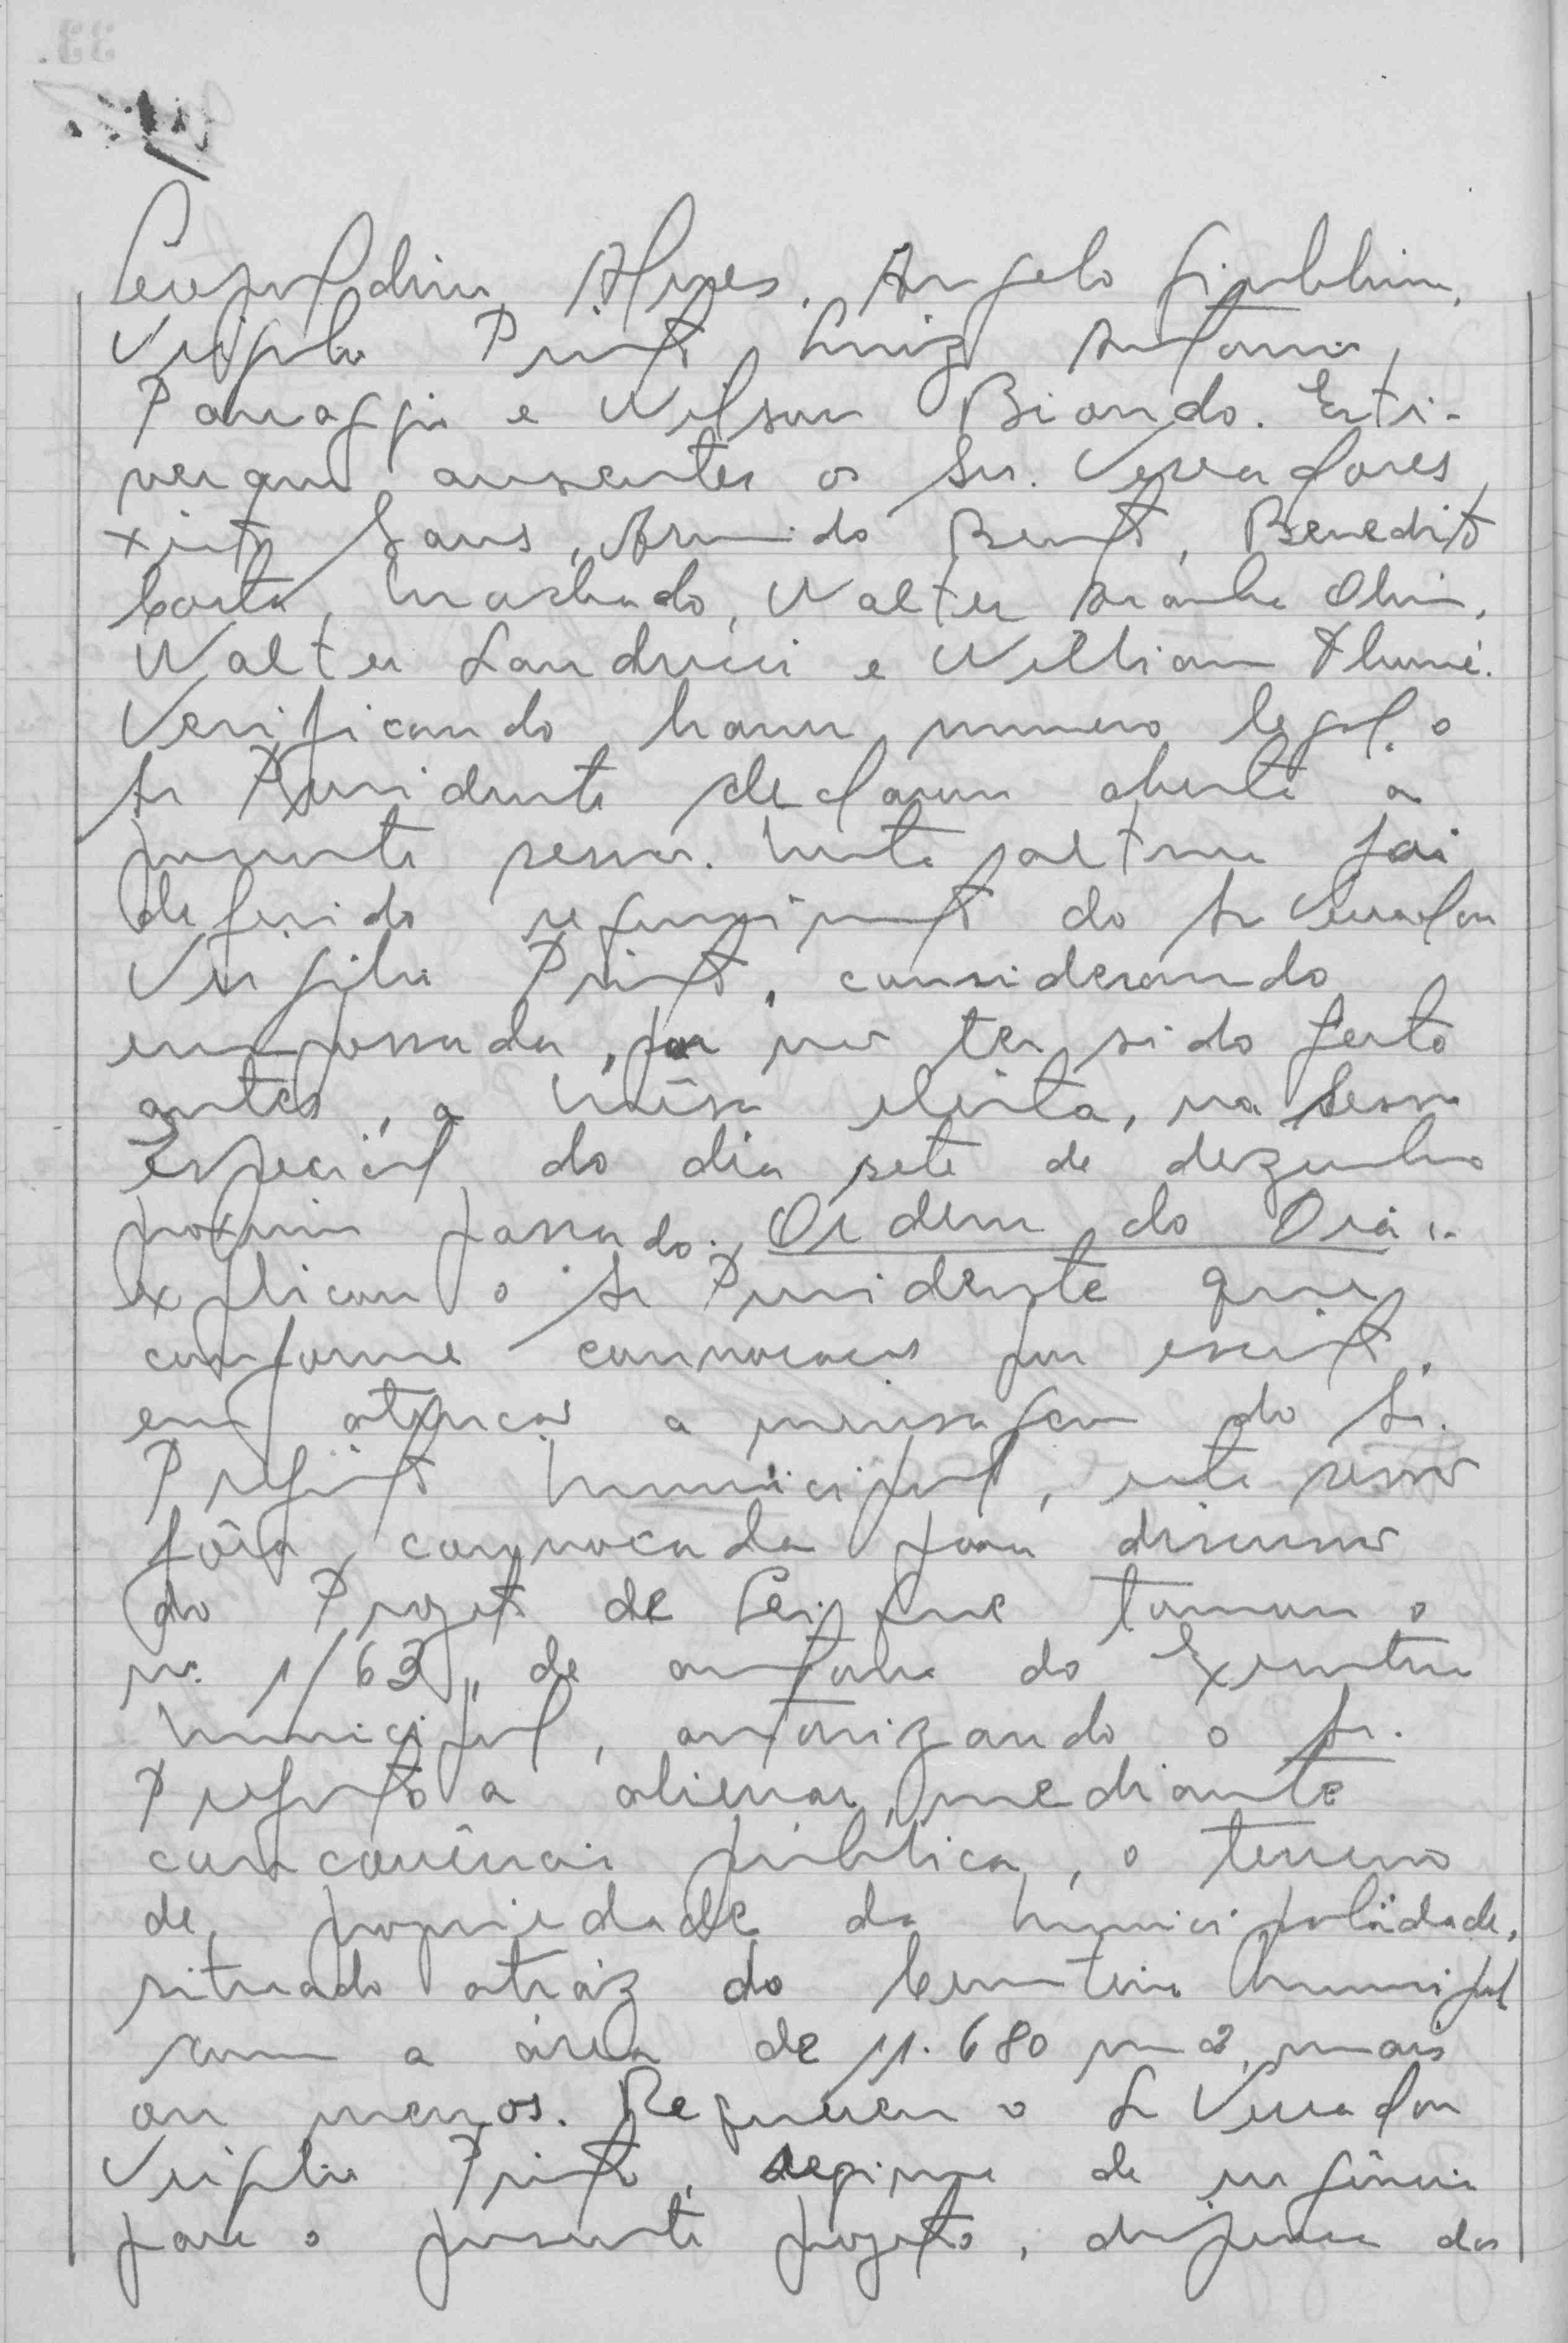 Leopoldino Alves, Angelo
Virgilio Pinto, Luiz Antonio
Panaggio e Wilson Biondo. Esti-
veram ausentes os Srs. Vereadores
Armindo Bento, Benedito
Costa, Machado, Walter Aranha Olim,
Walter Landucci e William
Verificando haver numero legal, o
Sr Presidente declarou aberta a
presente sessão. Nesta altura foi
deferido requerimento do Sr Vereador
Virgilio Pinto, considerando
empossada, por não ter sido feito
antes, a Mêsa eleita, na sessão
Especial do dia sete de dezembro
proximo passado. Ordem do Dia:-
explicou o Sr Presidente que
conforme convocação por escrito,
em atenção a mensagem do Sr.
Prefeito Municipal, esta sessão
fôra convocada para discussão
do Projeto de Lei que tomou o
nº. 1/62, de autoria do Executivo
Municipal, autorizando o Sr.
Prefeito a alienar, mediante
concorrência pública, o terreno
de propriedade da municipalidade,
situado atráz do Cemiterio Municipal
com a área de 11.680 m2, mais
ou menos. Requereu o Sr Vereador
Virgilio Pinto, regime de urgência
para o presente projeto, dispensa das